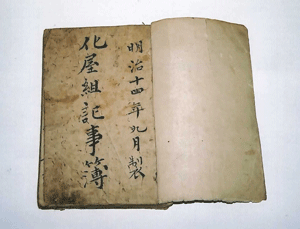 明治十四年九月製
化屋組記事簿